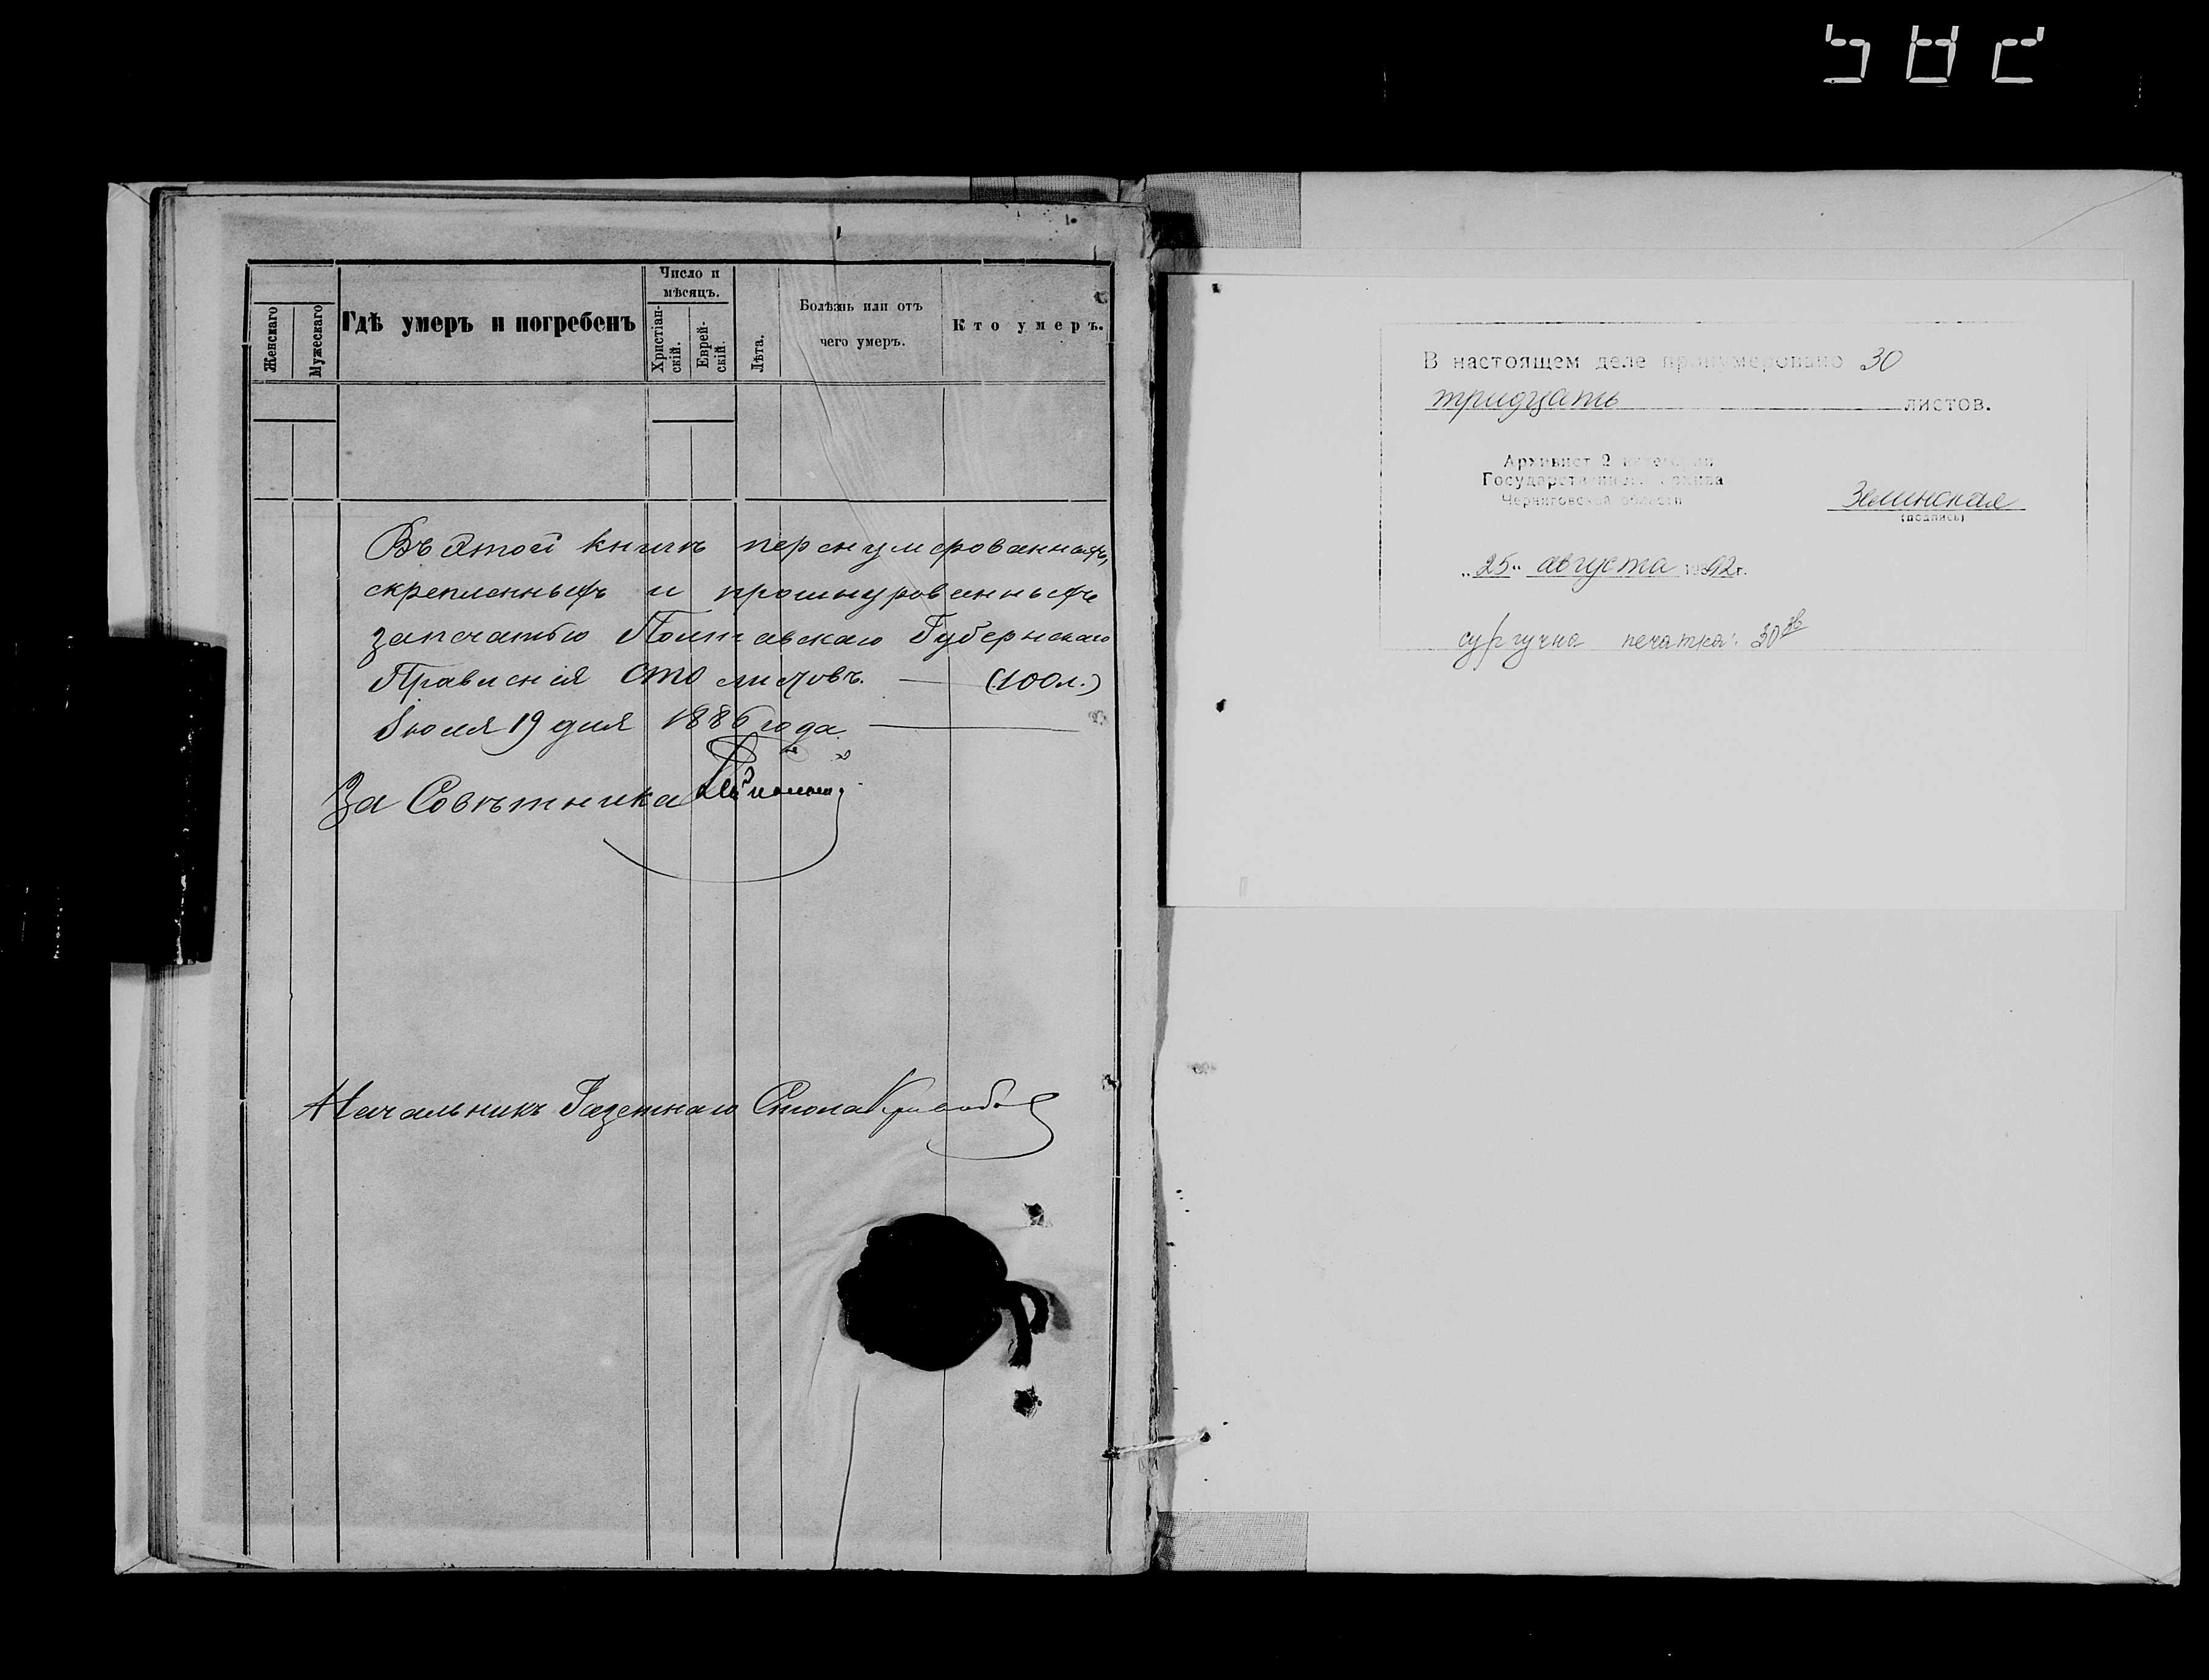 Женскаго
Мужескаго
Гдѣ умеръ и погребенъ
Число и
мѣсяцъ.
Христіан-
скій.
Еврей-
скій.
Лѣта.
Болѣзнь или отъ
чего умеръ.
Кто умеръ.
Въ этой книгѣ перенумерованныхъ,
скрепленныхъ и прошнурованныхъ
за печатью Полтавскаго Губернскаго
Правленія сто листовъ. — (100 л.)
Іюля 19 дня 1886 года. —
За Совѣтника
Начальникъ Газетнаго Стола
В настоящем деле пронумеровано 30
тридцать листов.
Архивист 2 категории
Государственного архива
Черниговской области
Зелинская
(подпись)
„25" августа 1992г.
сургучна печатка: 30зв